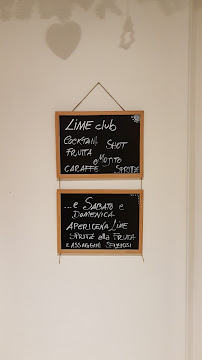 LIME club
COCKTAIL SHOT
FRUTTA
e MOJITO
CARAFFE SPRITZ
...e SABATO e
DOMENICA
APERICENA LIME
SPRITZ alla FRUTTA
e ASSAGGINI SFIZIOSI